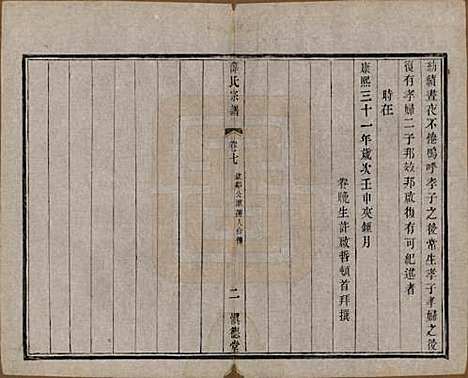 紡績晝夜不倦嗚呼孝子之後常生孝子孝婦之後
復有孝婦二子邦效邦啟復有可紀述者
時在
康熙三十一年歲次壬申夾鍾月
眷晚生許啟哲頓首拜撰
氏宗譜
卷七
二
堂